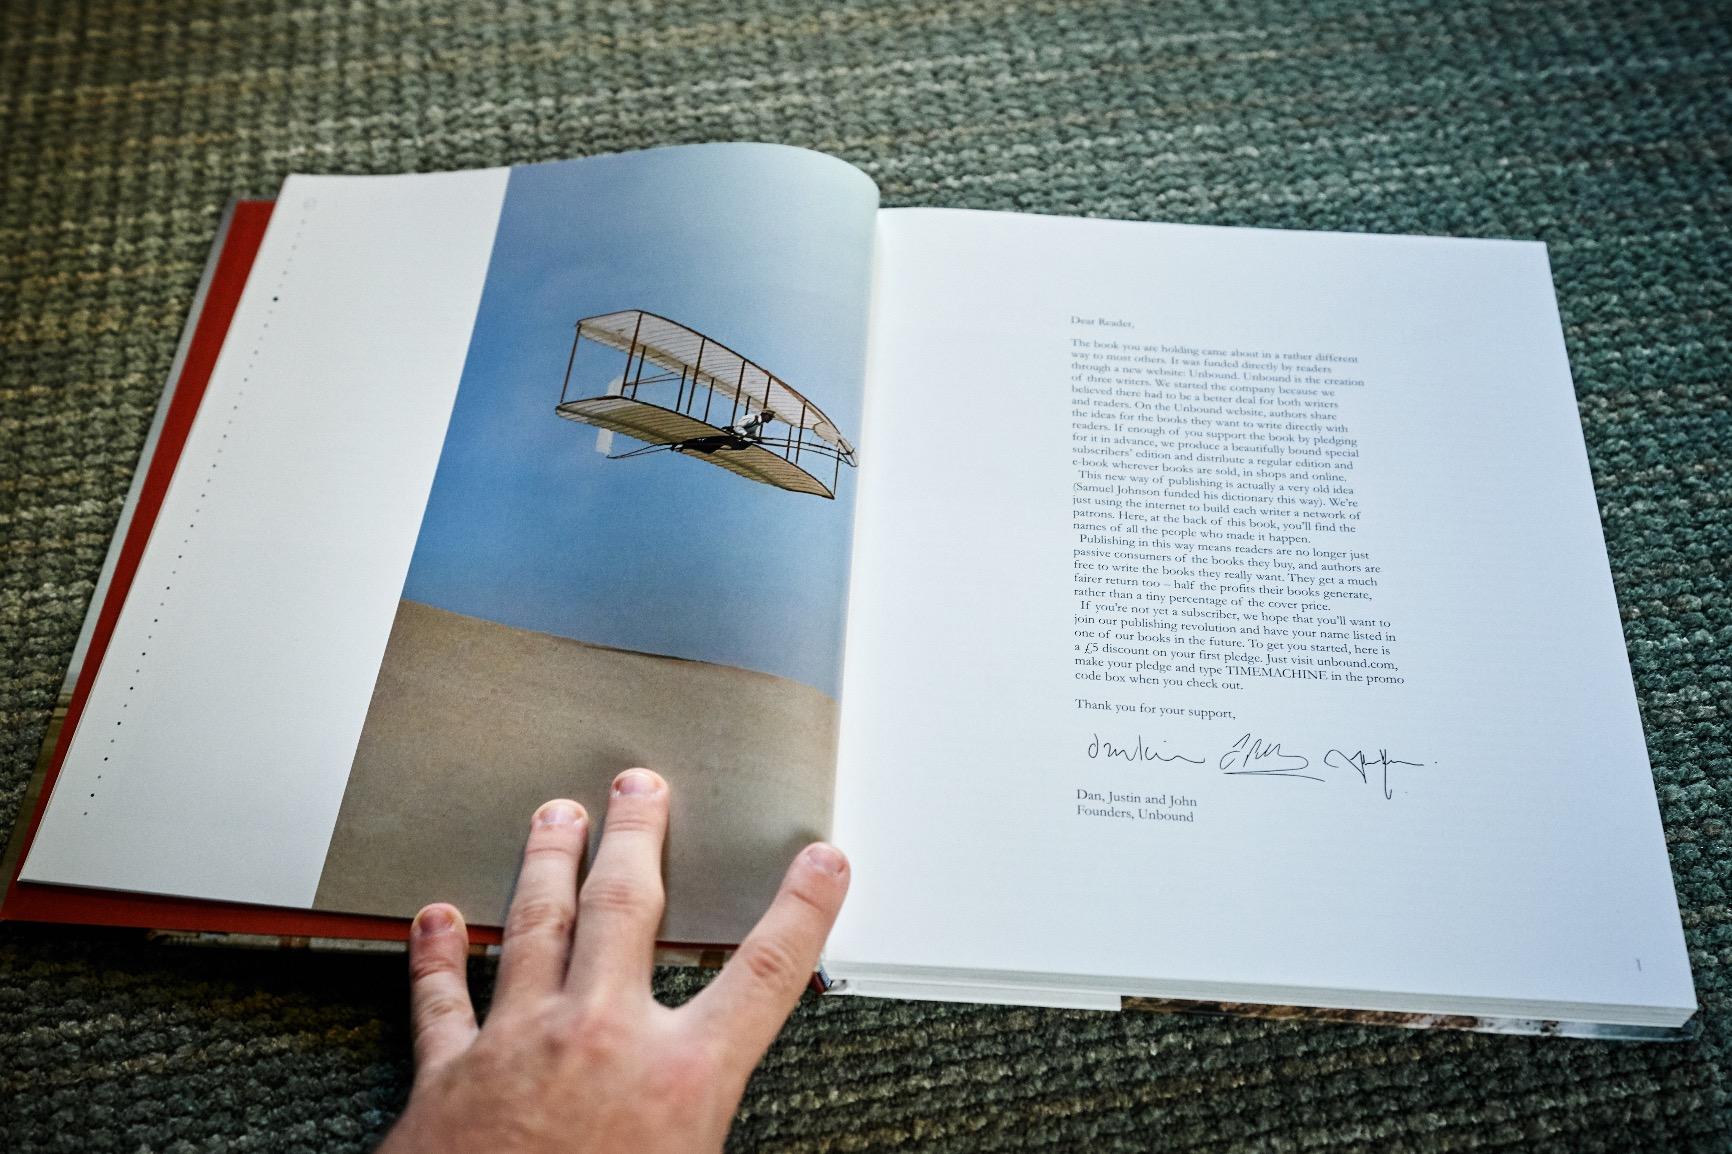 Dear Reader,
The book you are holding came about in a rather different
way to most others. It was funded directly by readers
through a new website: Unbound. Unbound is the creation
of three writers. We started the company because we
believed there had to be a better deal for both writers
and readers. On the Unbound website, authors share
the ideas for the books they want to write directly with
readers. If enough of you support the book by pledging
for it in advance, we produce a beautifully bound special
subscribers' edition and distribute a regular edition and
e-book wherever books are sold, in shops and online.
This new way of publishing is actually a very old idea
(Samuel Johnson funded his dictionary this way). We're
just using the internet to build each writer a network of
patrons. Here, at the back of this book, you'll find the
names of all the people who made it happen.
Publishing in this way means readers are no longer just
passive consumers of the books they buy, and authors are
free to write the books they really want. They get a much
fairer return too – half the profits their books generate,
rather than a tiny percentage of the cover price.
If you're not yet a subscriber, we hope that you'll want to
join our publishing revolution and have your name listed in
one of our books in the future. To get you started, here is
a £5 discount on your first pledge. Just visit unbound.com,
make your pledge and type TIMEMACHINE in the promo
code box when you check out.
Thank you for your support,
Dan, Justin and John
Founders, Unbound
1